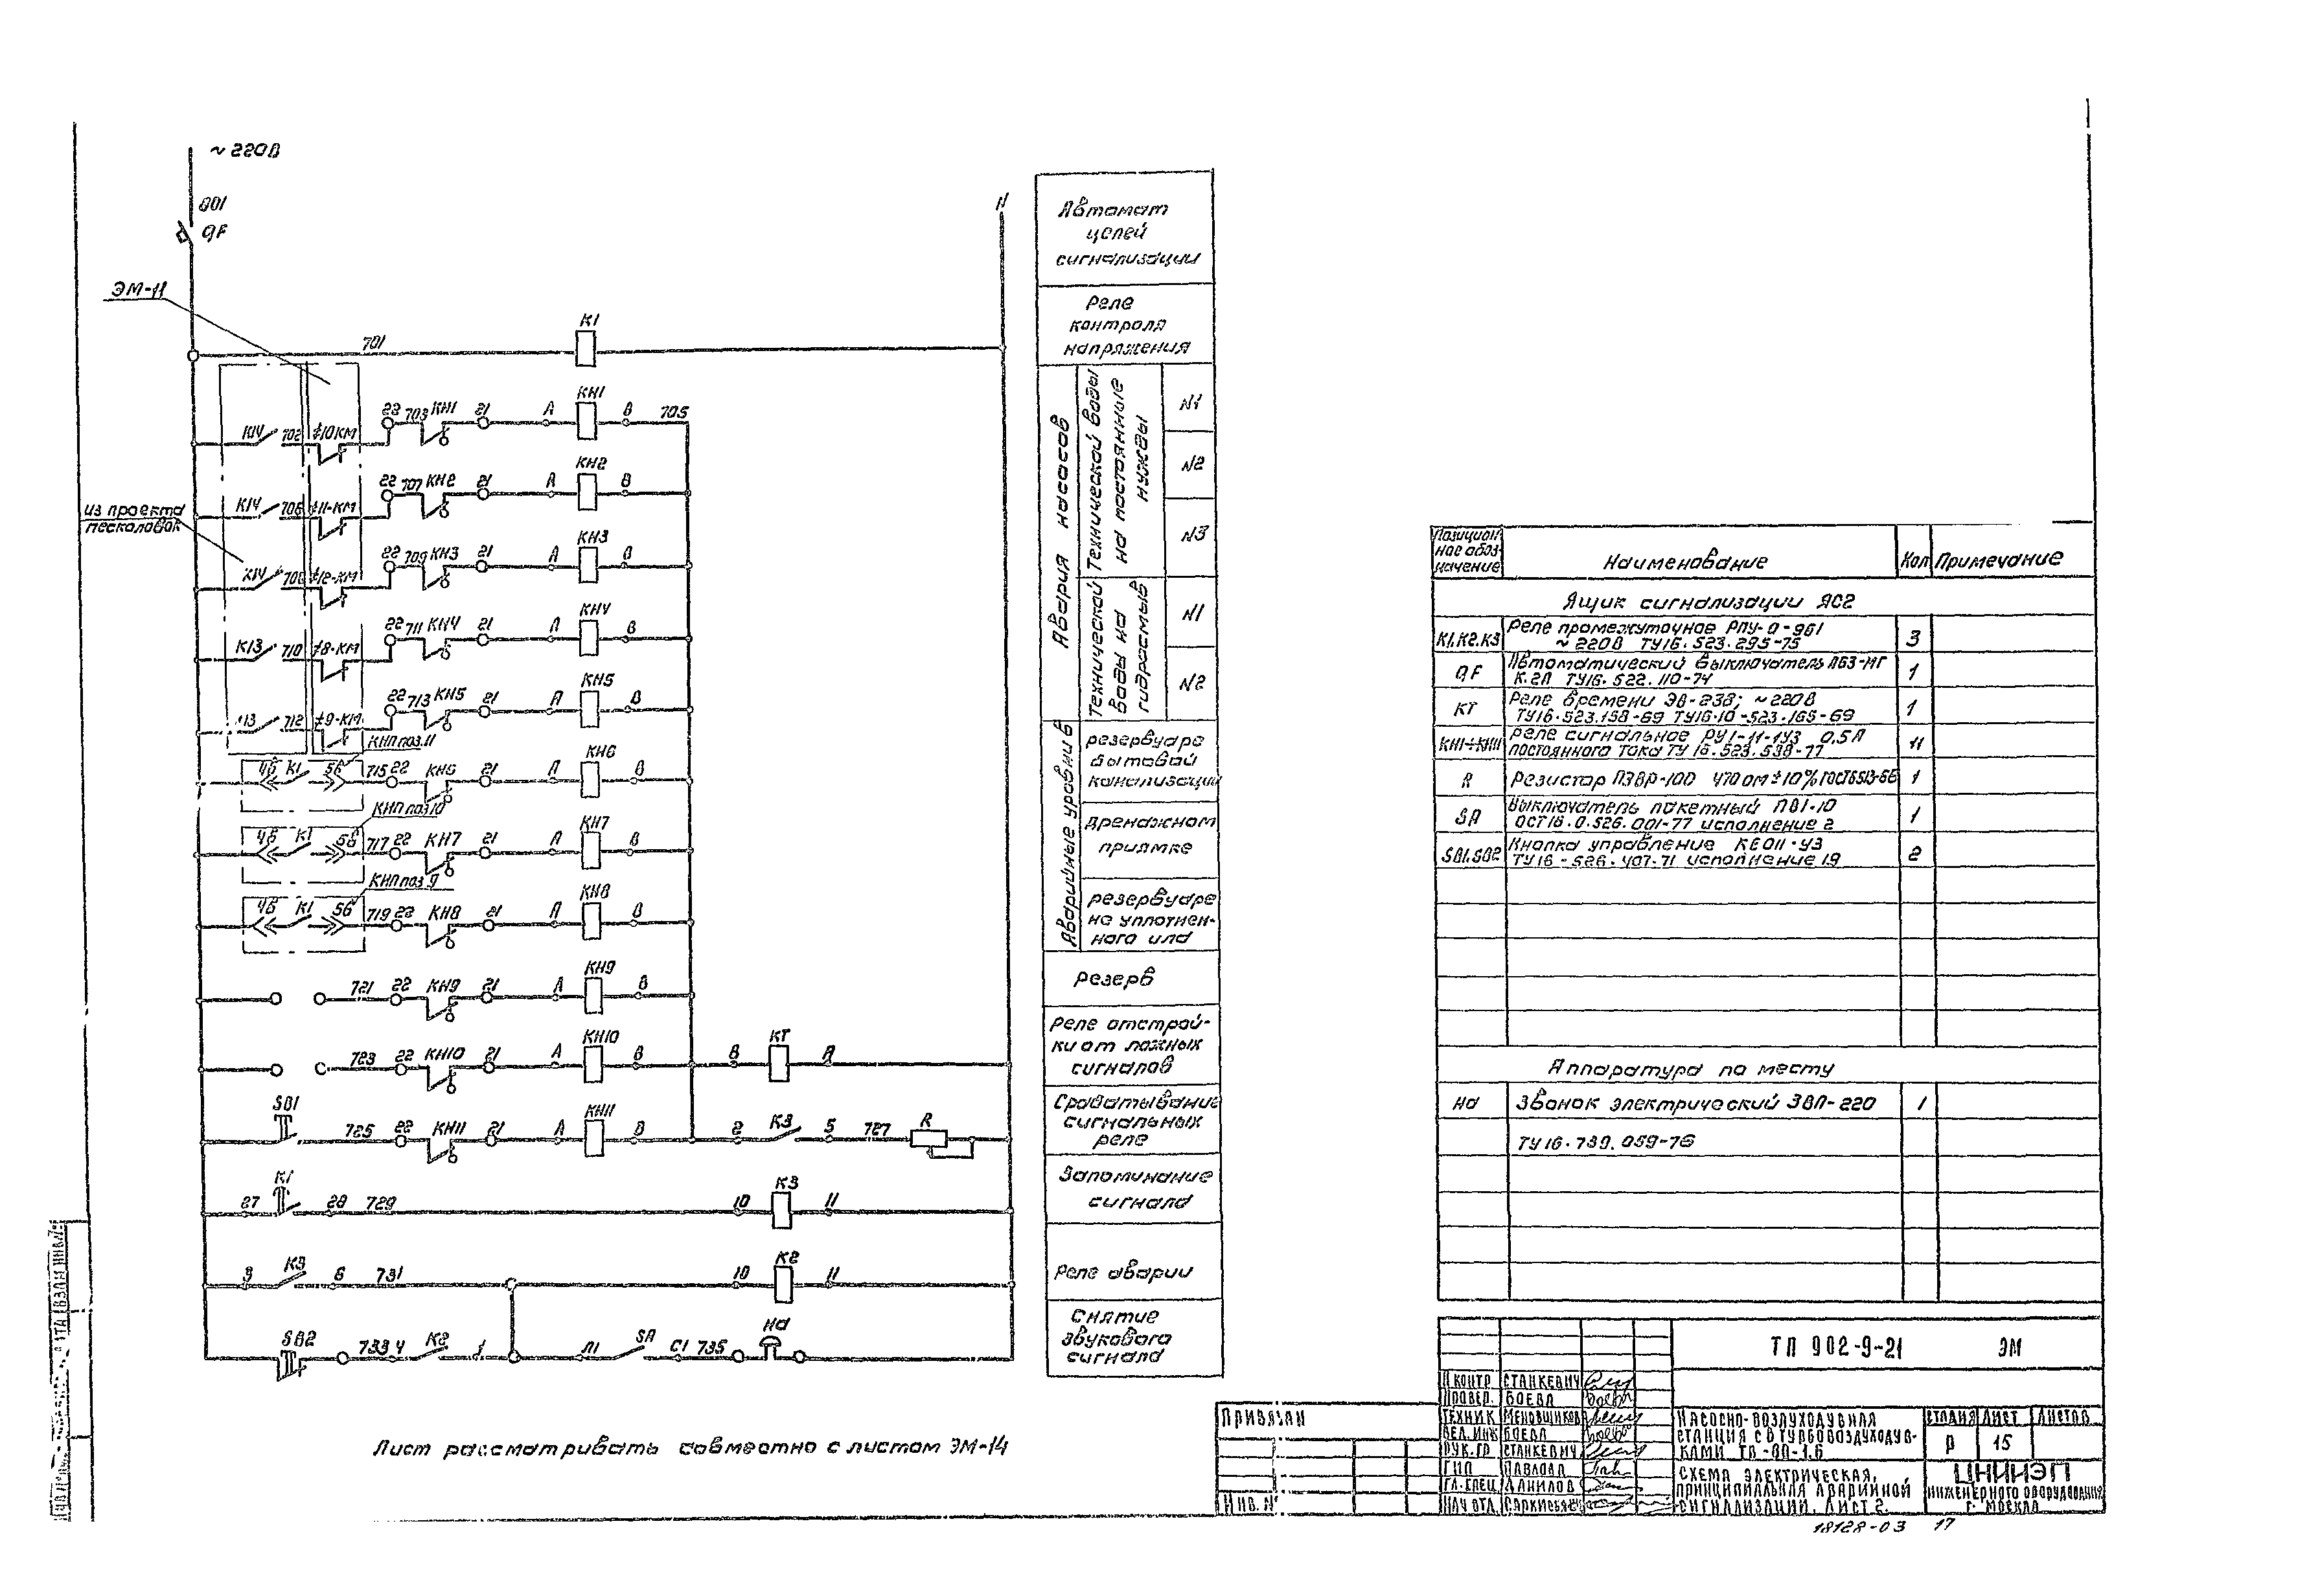 ~220В
801
QF
ЭМ-11
N
701
К1
К14 702 ±10КМ 22 703 КН1 21 А КН1 В 705
из проекта
песколовок
К14 706 ±11-КМ 22 707 КН2 21 А КН2 В
К14 708 ±12-КМ 22 709 КН3 21 А КН3 В
К13 710 ±8-КМ 22 711 КН4 21 А КН4 В
К13 712 ±9-КМ 22 713 КН5 21 А КН5 В
КНП поз.11
4б К1 5б 715 22 КН6 21 А КН6 В
КНП поз10
4б К1 5б 717 22 КН7 21 А КН7 В
КНП поз9
4б К1 5б 719 22 КН8 21 А КН8 В
721 22 КН9 21 А КН9 В
723 22 КН10 21 А КН10 В В КТ А
SB1 725 22 КН11 21 А КН11 В 2 К3 5 727 R
27 К1 28 729 10 К3 11
3 К3 6 731 10 К2 11
SB2 733 4 К2 1 Л1 SA С1 735 НА
Лист рассматривать совместно с листом ЭМ-14
Автомат
цепей
сигнализации
Реле
контроля
напряжения
Авария насосов
Технической воды
на постоянные
нужды
N1
N2
N3
Технической
воды на
гидросмыв
N1
N2
Аварийные уровни в
резервуаре
бытовой
канализации
дренажном
приямке
резервуаре
не уплотнен-
ного ила
Резерв
Реле отстрой-
ки от ложных
сигналов
Срабатывание
сигнальных
реле
Запоминание
сигнала
Реле аварии
Снятие
звукового
сигнала
Позицион
ное обоз-
начение
Наименование
Кол
Примечание
Ящик сигнализации ЯС2
К1.К2.К3 Реле промежуточное РПУ-0-961 3
~220В ТУ16.523.295-75
QF Автоматический выключатель АБ3-МГ 1
К.2А ТУ16.522.110-74
КТ Реле времени ЭВ-238; ~220В 1
ТУ16.523.158-69 ТУ16-10-523.165-69
КН1÷КН11 Реле сигнальное РУ1-11-1У3 0.5А 11
постоянного тока ТУ 16.523.538-77
R Резистор ПЭВР-100 470ом±10%ГОСТ6513-66 1
SA Выключатель пакетный ПВ1-10 1
ОСТ16.0.526.001-77 исполнение 2
SB1.SB2 Кнопка управление КЕ011-У3 2
ТУ16-526.407.71 исполнение 19
Аппаратура по месту
НА Звонок электрический ЗВП-220 1
ТУ16.739.059-76
ТП 902-9-21 ЭМ
Привязан
Инв. №
Н контр. Станкевич
Провер. Боева
Техник Меновщиков
Вед. инж Боева
Рук. гр Станкевич
ГИП Павлова
Гл. спец Данилов
Нач отд.
Насосно-воздуходувная
станция с 6 турбовоздуходув-
ками ТВ-80-1.6
Стадия Лист Листов
Р 15
Схема электрическая,
принципиальная аварийной
сигнализации. Лист 2.
ЦНИИЭП
инженерного оборудования
г. Москва
18128-03 17